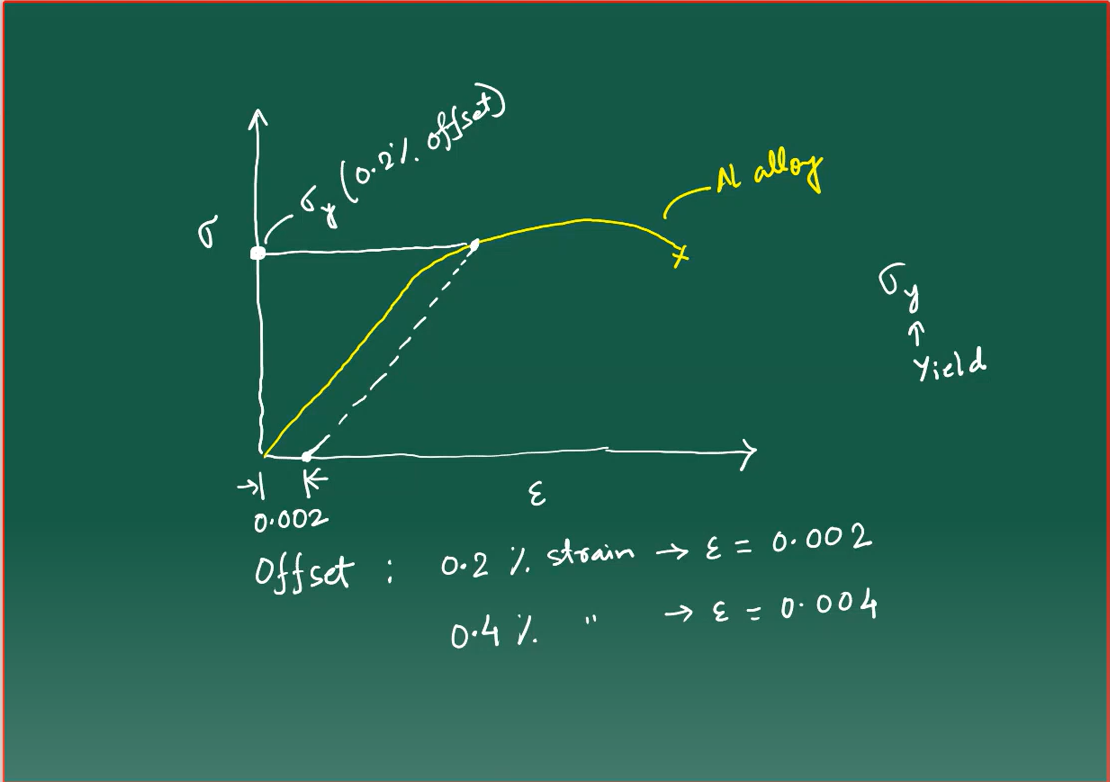 σy (0.2% offset)
Al alloy
σ
σy
↑
Yield
0.002
ε
Offset : 0.2 % strain → ε = 0.002
0.4 % " → ε = 0.004